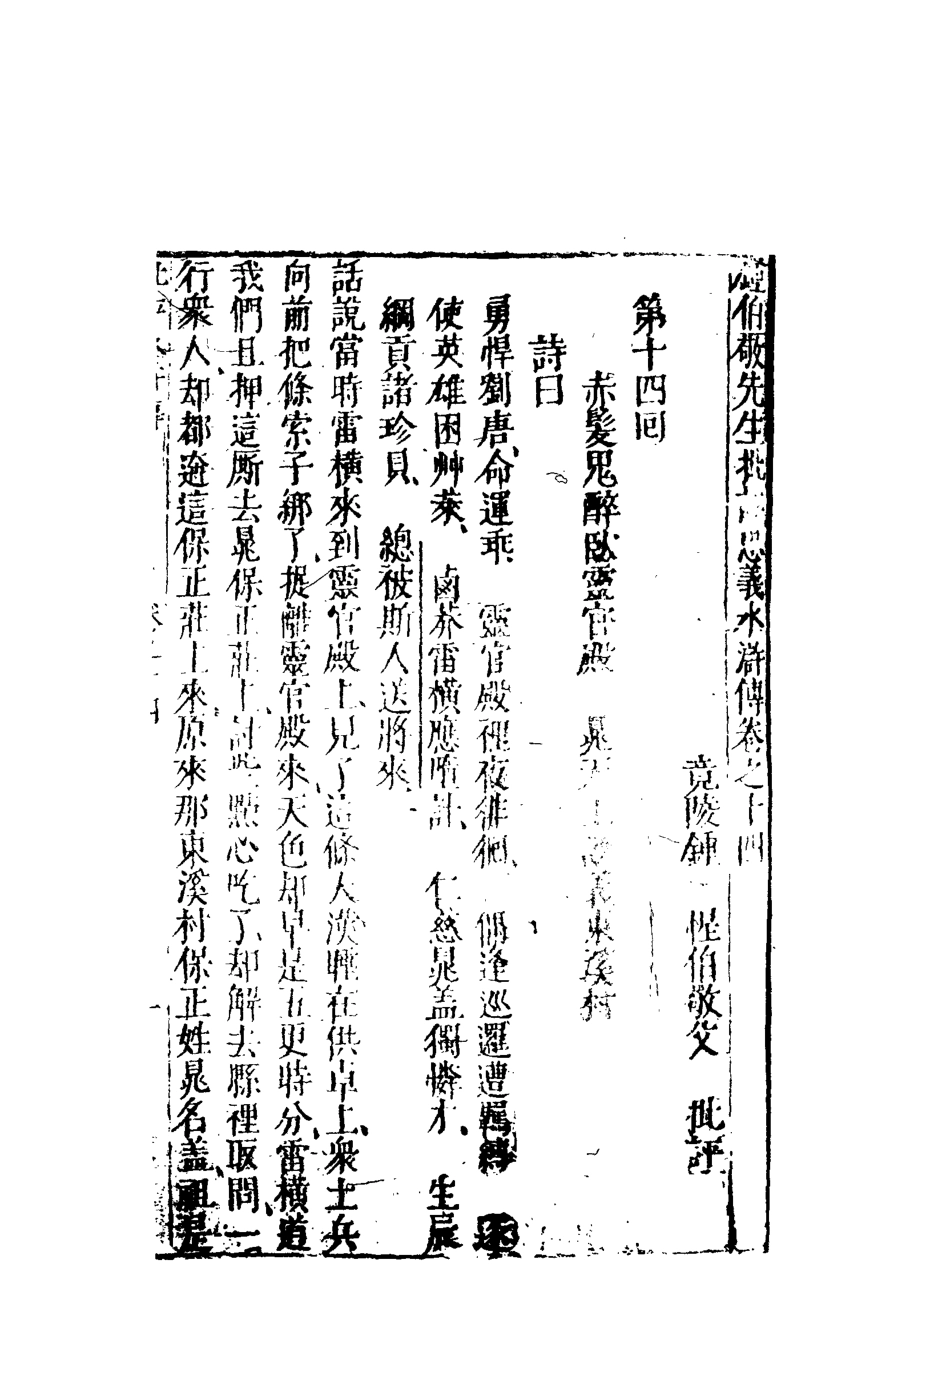 鍾伯敬先生批評忠義水滸傳卷之十四
竟陵鍾 惺伯敬父 批評
第十四回
赤髮鬼醉臥靈官殿 晁天王認義東溪村
詩曰
勇悍劉唐、命運乖 靈官殿裡夜徘徊、 偶逢巡邏遭羈縛 遂
使英雄困艸萊、 鹵莽雷橫應墮計、 仁慈晁盖獨憐才、 生辰
綱貢諸珍貝、 總被斯人送將來、
話說當時雷橫來到靈官殿上、見了這條大漢睡在供卓上、衆土兵
向前把條索子綁了、捉離靈官殿來、天色却早是五更時分、雷橫道
我們且押這厮去晁保正莊上、討些點心吃了、却解去縣裡取問、一
行衆人、却都迯這保正莊上來、原來那東溪村保正姓晁名盖、祖是